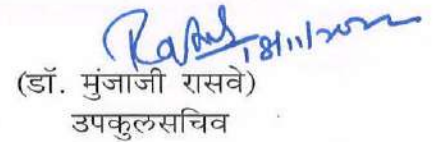 18/11/2022
(डॉ. मुंजाजी रासवे)
उपकुलसचिव